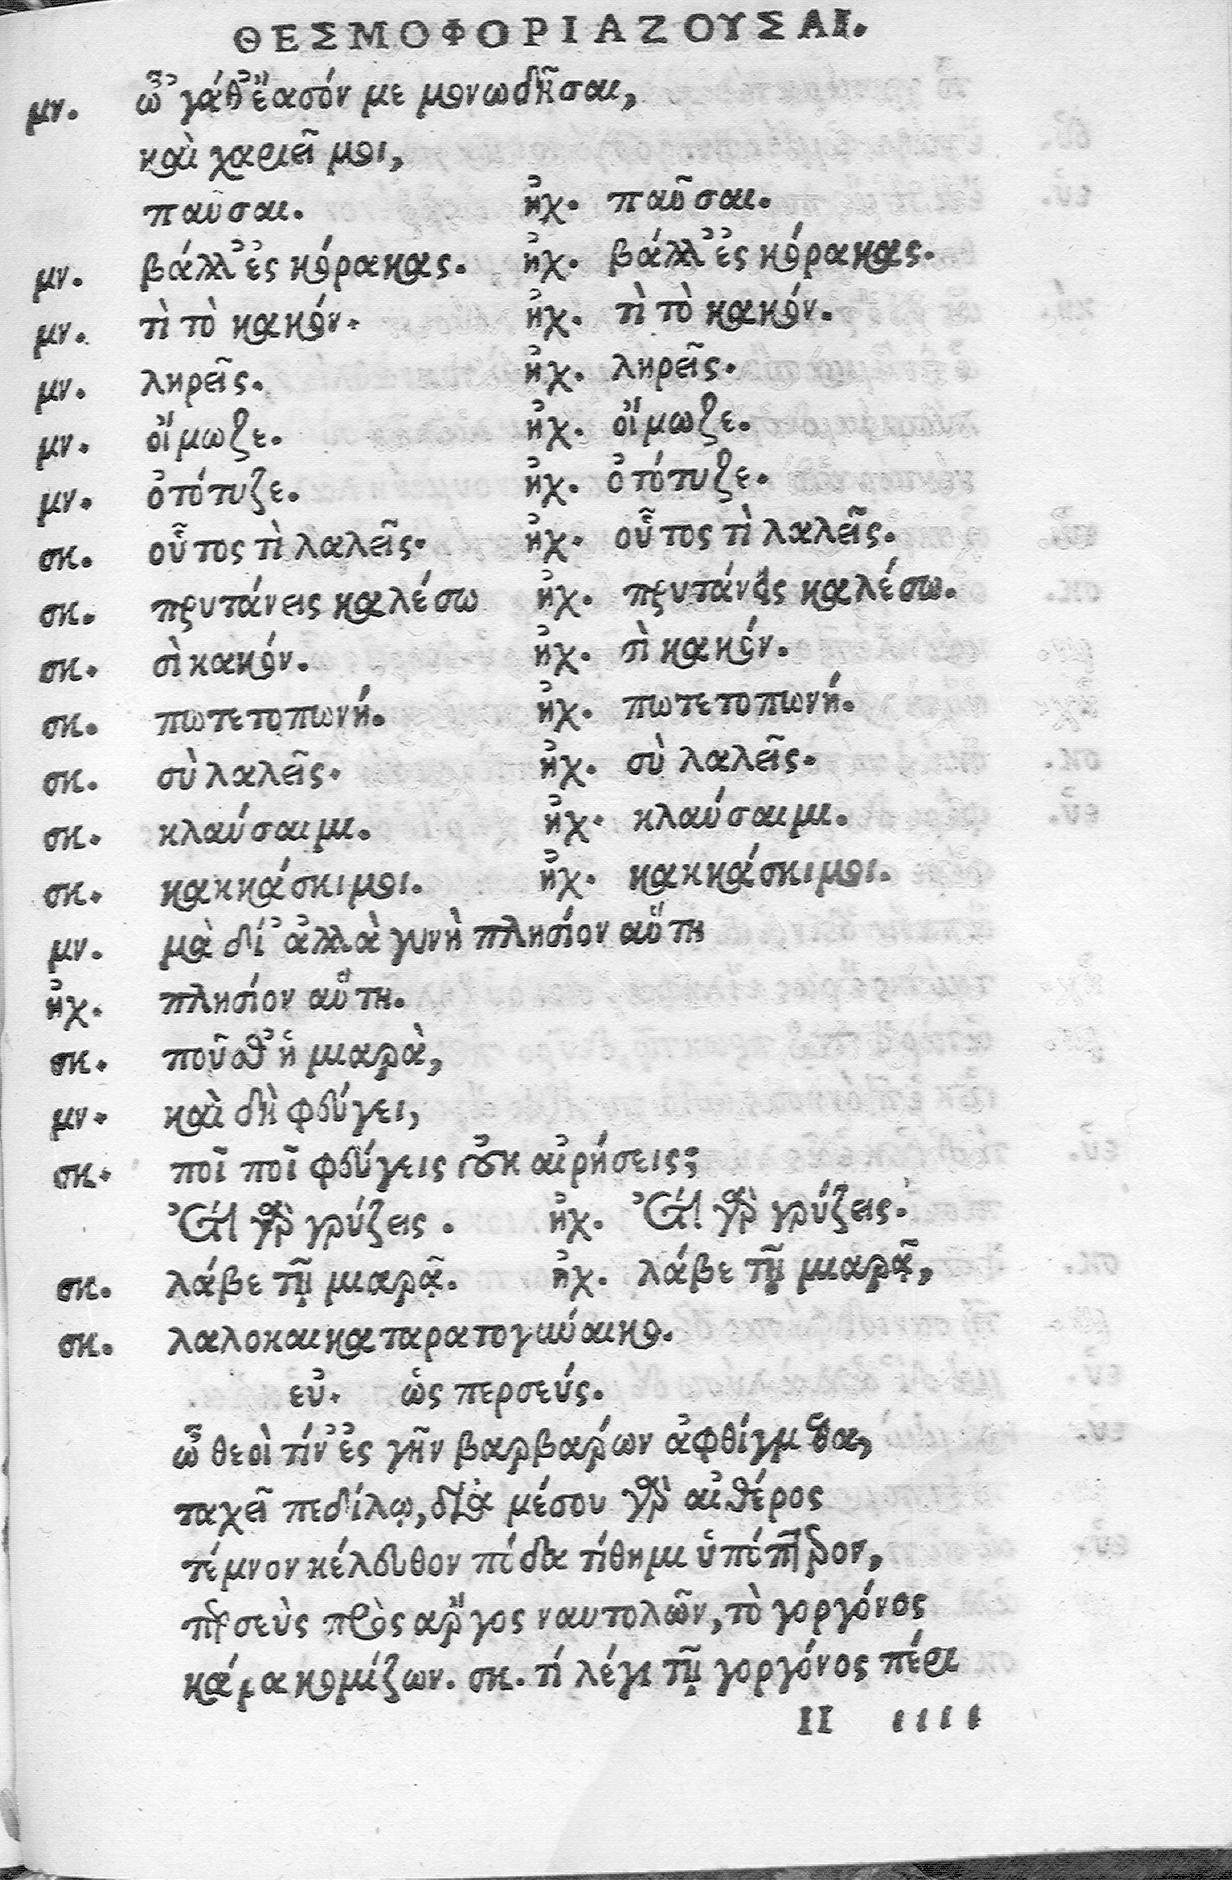 ΘΕΣΜΟΦΟΡΙΑΖΟΥΣΑΙ.
μν. ὦ 'γάθ' ἔασόν με μονωδῆσαι,
καὶ χαριεῖ μοι,
παῦσαι. ἠχ. παῦσαι.
μν. βάλλ' ἐς κόρακας. ἠχ. βάλλ' ἐς κόρακας.
μν. τὶ τὸ κακόν. ἠχ. τὶ τὸ κακόν.
μν. ληρεῖς. ἠχ. ληρεῖς.
μν. οἴμωζε. ἠχ. οἴμωζε.
μν. ὀτότυζε. ἠχ. ὀτότυζε.
σκ. οὗτος τὶ λαλεῖς. ἠχ. οὗτος τὶ λαλεῖς.
σκ. πρυτάνεις καλέσω ἠχ. πρυτάνεις καλέσω.
σκ. σὶ κακόν. ἠχ. σὶ κακόν.
σκ. πωτετοπωνή. ἠχ. πωτετοπωνή.
σκ. σὺ λαλεῖς. ἠχ. σὺ λαλεῖς.
σκ. κλαύσαιμι. ἠχ. κλαύσαιμι.
σκ. κακκάσκιμοι. ἠχ. κακκάσκιμοι.
μν. μὰ δί' ἀλλὰ γυνὴ πλησίον αὕτη
ἠχ. πλησίον αὕτη.
σκ. ποῦσθ' ἡ μιαρὰ,
μν. καὶ δὴ φεύγει,
σκ. ποῖ ποῖ φεύγεις οὐκ αἱρήσεις;
ἔτι γὰρ γρύζεις. ἠχ. ἔτι γὰρ γρύζεις.
σκ. λάβε τῇ μιαρᾷ. ἠχ. λάβε τῇ μιαρᾷ,
σκ. λαλοκαικαταρατογύναικο.
εὐ. ὡς περσεύς.
ὦ θεοὶ τίν' ἐς γῆν βαρβαρίων ἀφθίγμεθα,
ταχεῖ πεδίλῳ, διὰ μέσου γὰρ αἰθέρος
τέμνον κέλευθον πόδα τίθημι ὑπόπτερον,
περσεὺς πρὸς ἄργος ναυτολῶν, τὸ γοργόνος
κάρα κομίζων. σκ. τί λέγι τῇ γοργόνος πέρι
II ιιιι